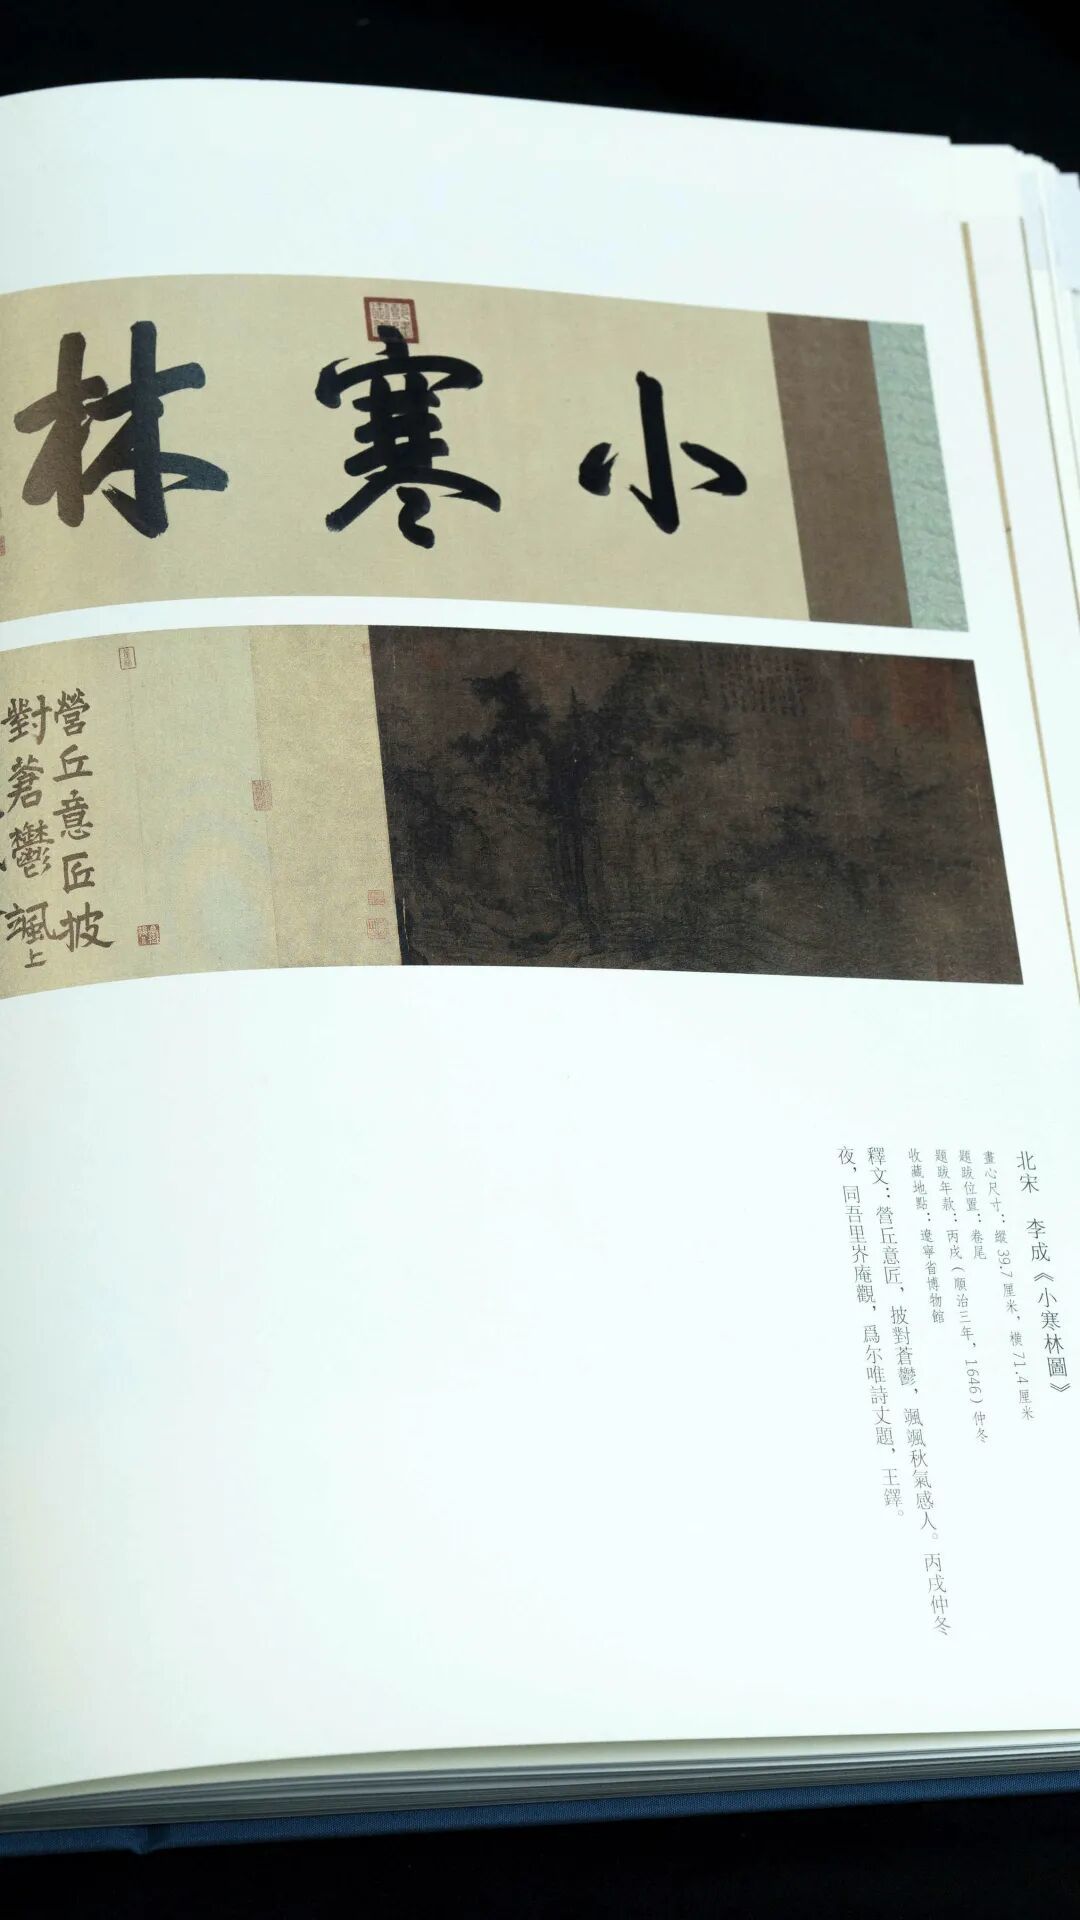 小寒林
營丘意匠披
對蒼鬱颯
北宋 李成《小寒林圖》
畫心尺寸：縱 39.7 厘米，橫 71.4 厘米
題跋位置：卷尾
題跋年款：丙戌（順治三年，1646）仲冬
收藏地點：遼寧省博物館
釋文：營丘意匠，披對蒼鬱，颯颯秋氣感人。丙戌仲冬
夜，同吾里岕庵觀，爲尔唯詩丈題，王鐸。